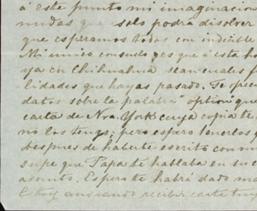 á este punto mi imaginacion
mudas que solo podrá disolver
que esperamos todos con indecible
Mi unico consuelo es que á esta ho
ya en Chihuahua sean cuales f
lidades que hayas pasado. Te ofrec
datos sobre la palabra "option" que
carta de New York cuya copia te
no los tengo, pero espero tenerlos
despues de haberte escrito con
supe que Papa te hablaba en su c
asunto. Espero te habrá dado
Estoy ansiando recibir carta tuya